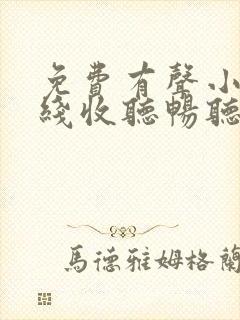 免費有聲小
綫收聽暢聽
馬德雅姆格蘭